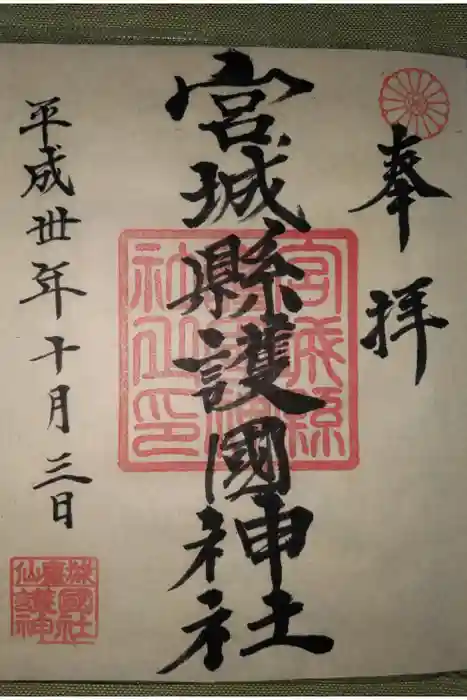 奉拝
宮城縣護國神社
平成丗年十月三日
宮城縣
護國神
社之印